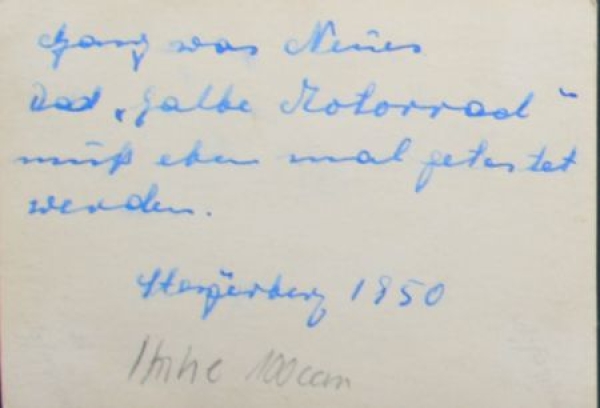 Ganz was Neues
Das "halbe Motorrad"
muß eben mal getestet
werden.
1950
100 ccm